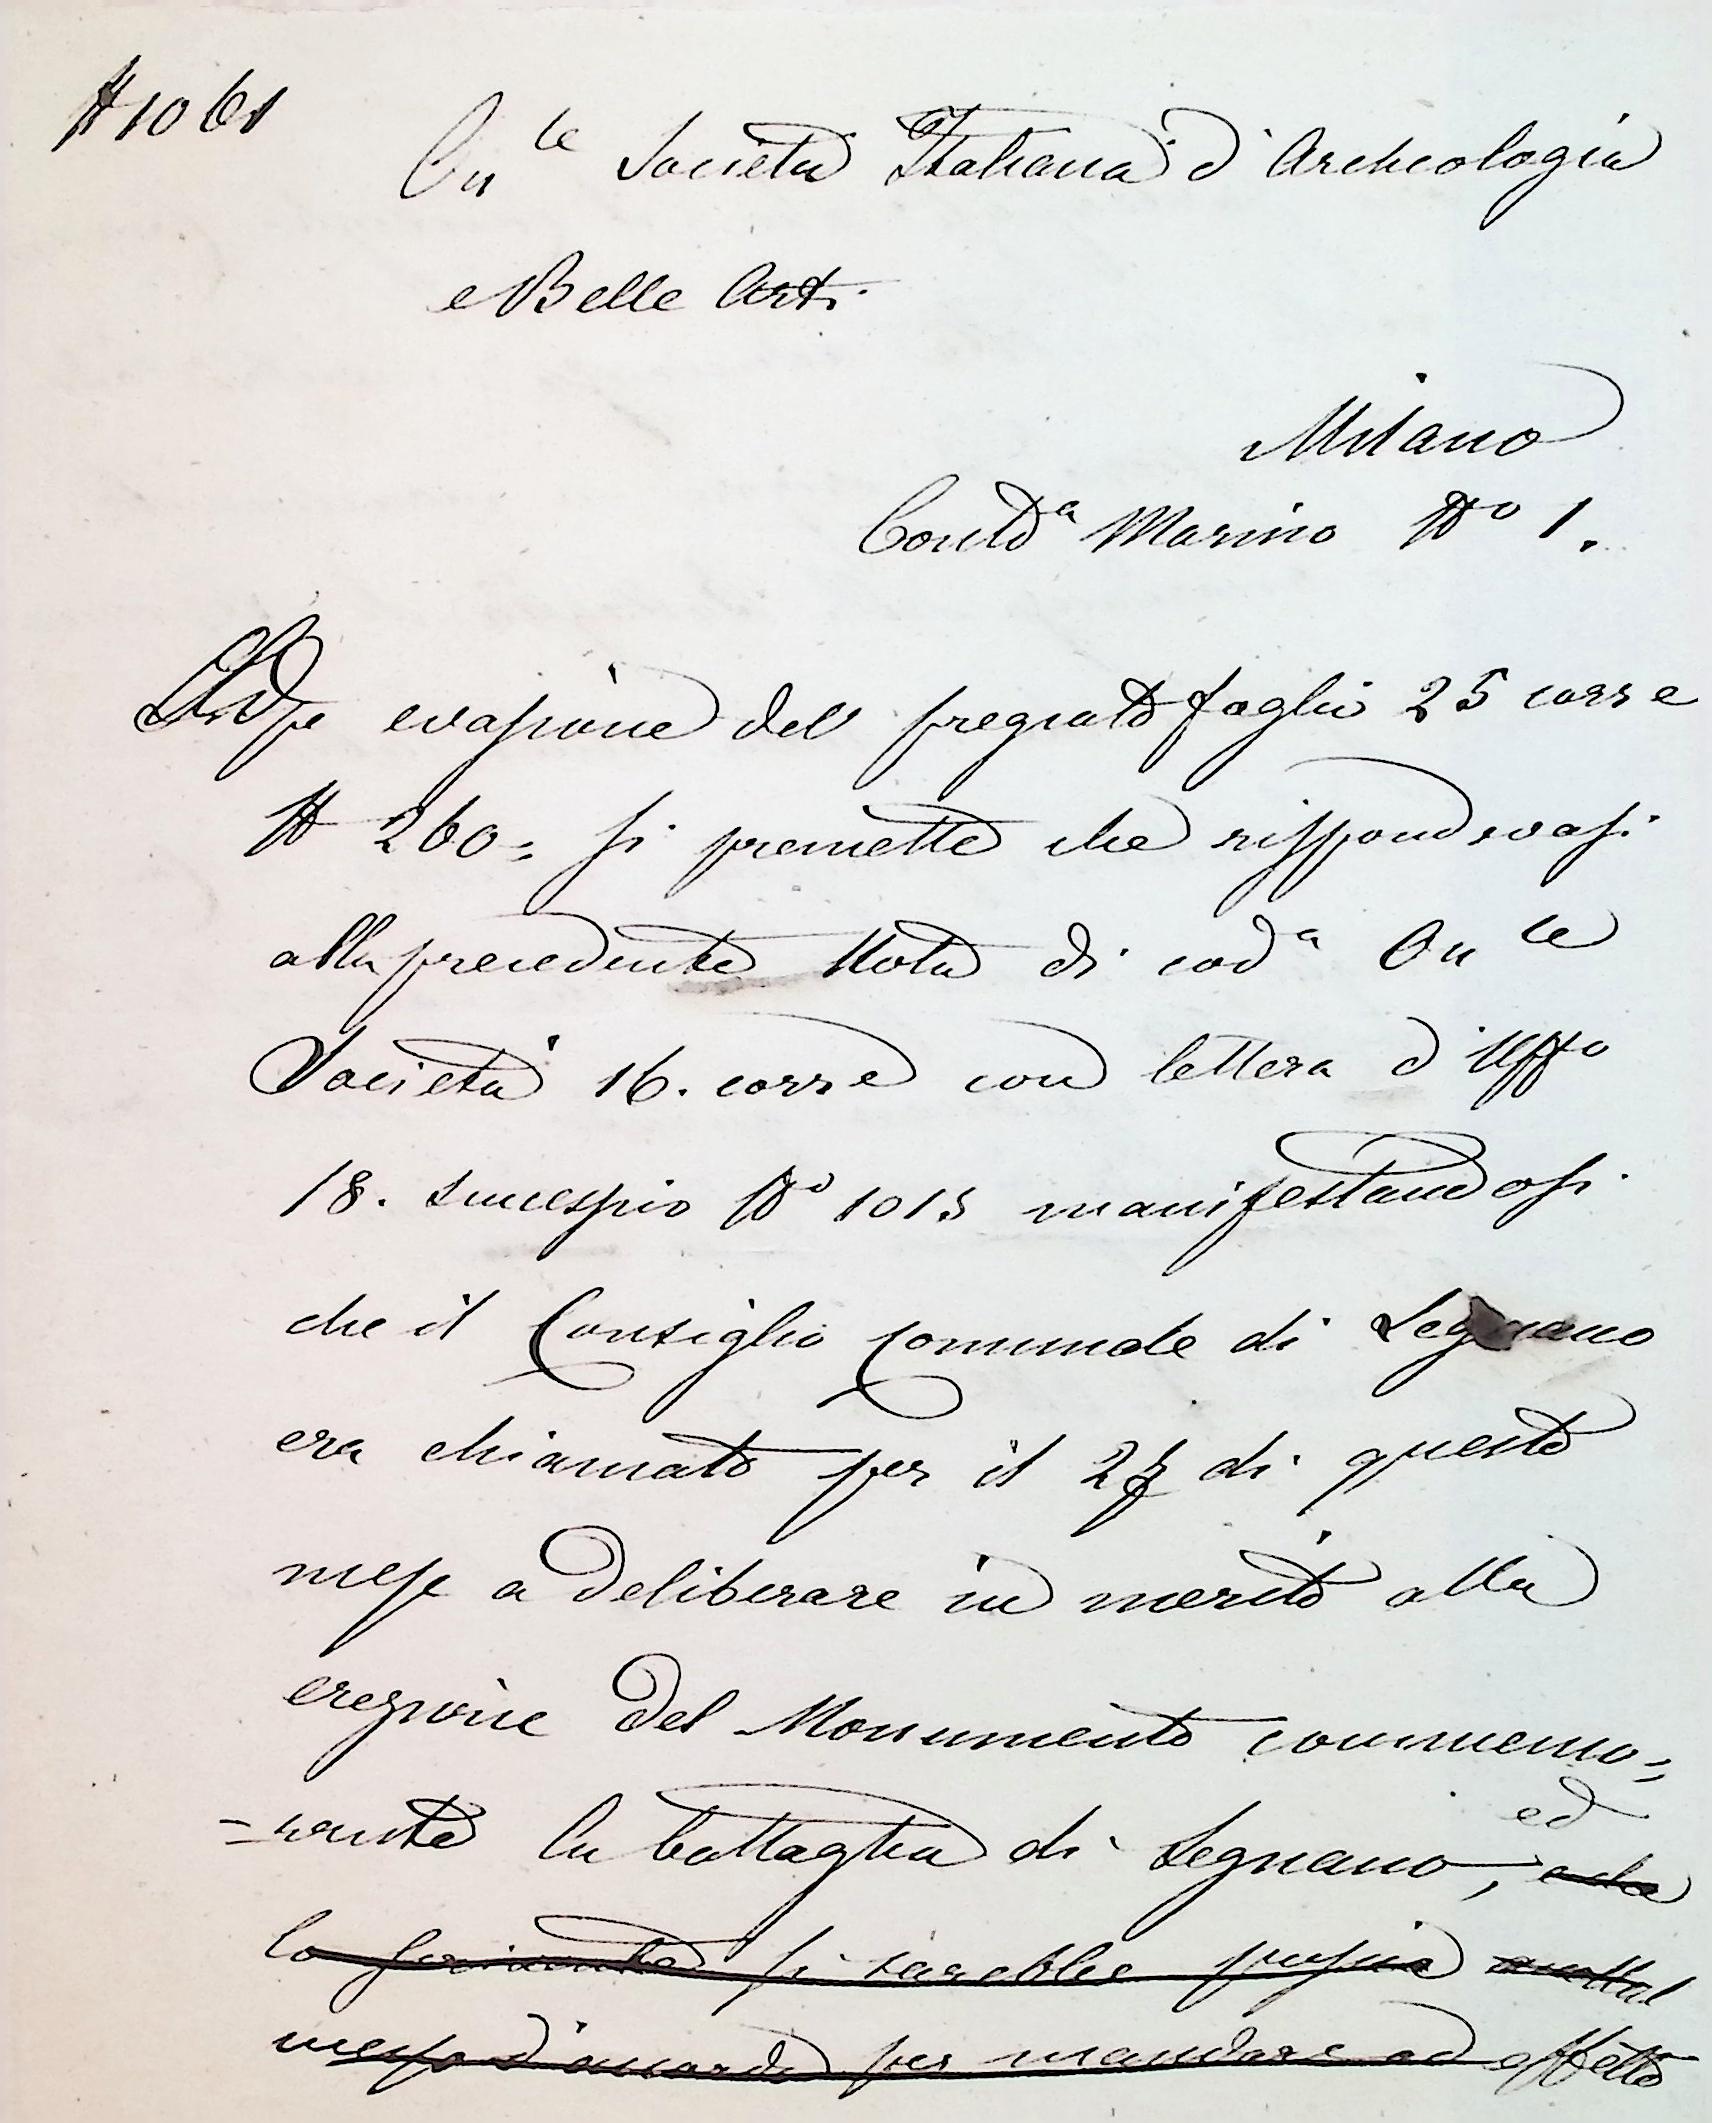 N 1061
On.le Società Italiana d'Archeologia
e Belle Arti
Milano
Contd.a Marino No 1.
evasione del pregiato foglio 25 corre
N 260= si premette che rispondevasi
alla precedente Nota di cod.a On.le
Società 16. corre con lettera d'Uffo
18. successivo No 1015 manifestandosi
che il Consiglio Comunale di Legnano
era chiamato per il 27 di questo
mese a deliberare in merito alla
erezione del Monumento commemo=
=rante la battaglia di Legnano, ed
la si sarebbe
messo d'accordo per mandare ad effetto